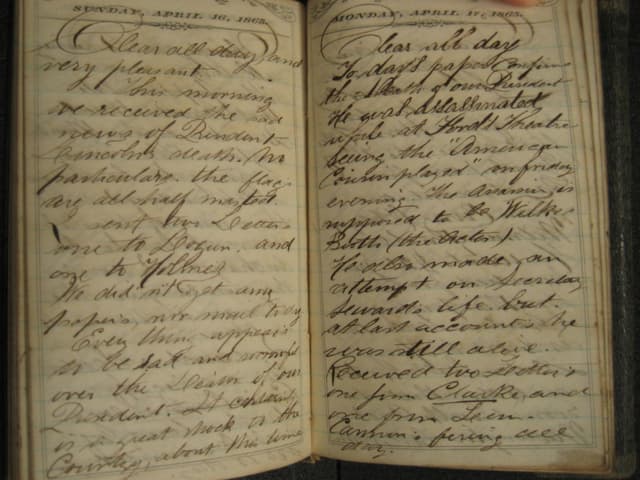 SUNDAY, APRIL 16, 1865.
Clear all day and
very pleasant
This morning
we received the sad
news of President
Lincoln's death. No
particulars. the flags
are all half mast
sent two Letters
one to Logan. and
one to Holmes
We did n't get any
papers, nor mail to day
Every thing appears
to be sad and
over the Death of our
President. It certainly
is a great shock to the
Country, about this time
MONDAY, APRIL 17, 1865.
Clear all day
To day's paper confirms
the death of our President
He was assassinated
while at Ford's Theatre
seeing the "American
Cousin played" on friday
evening. The assassin is
supposed to be Wilkes
Booth (the actor)
He also made an
attempt on Secretary
Sewards life but
at last accounts he
was still alive.
Received two letters
one from Clarke and
one from
Cannon's firing all
day.